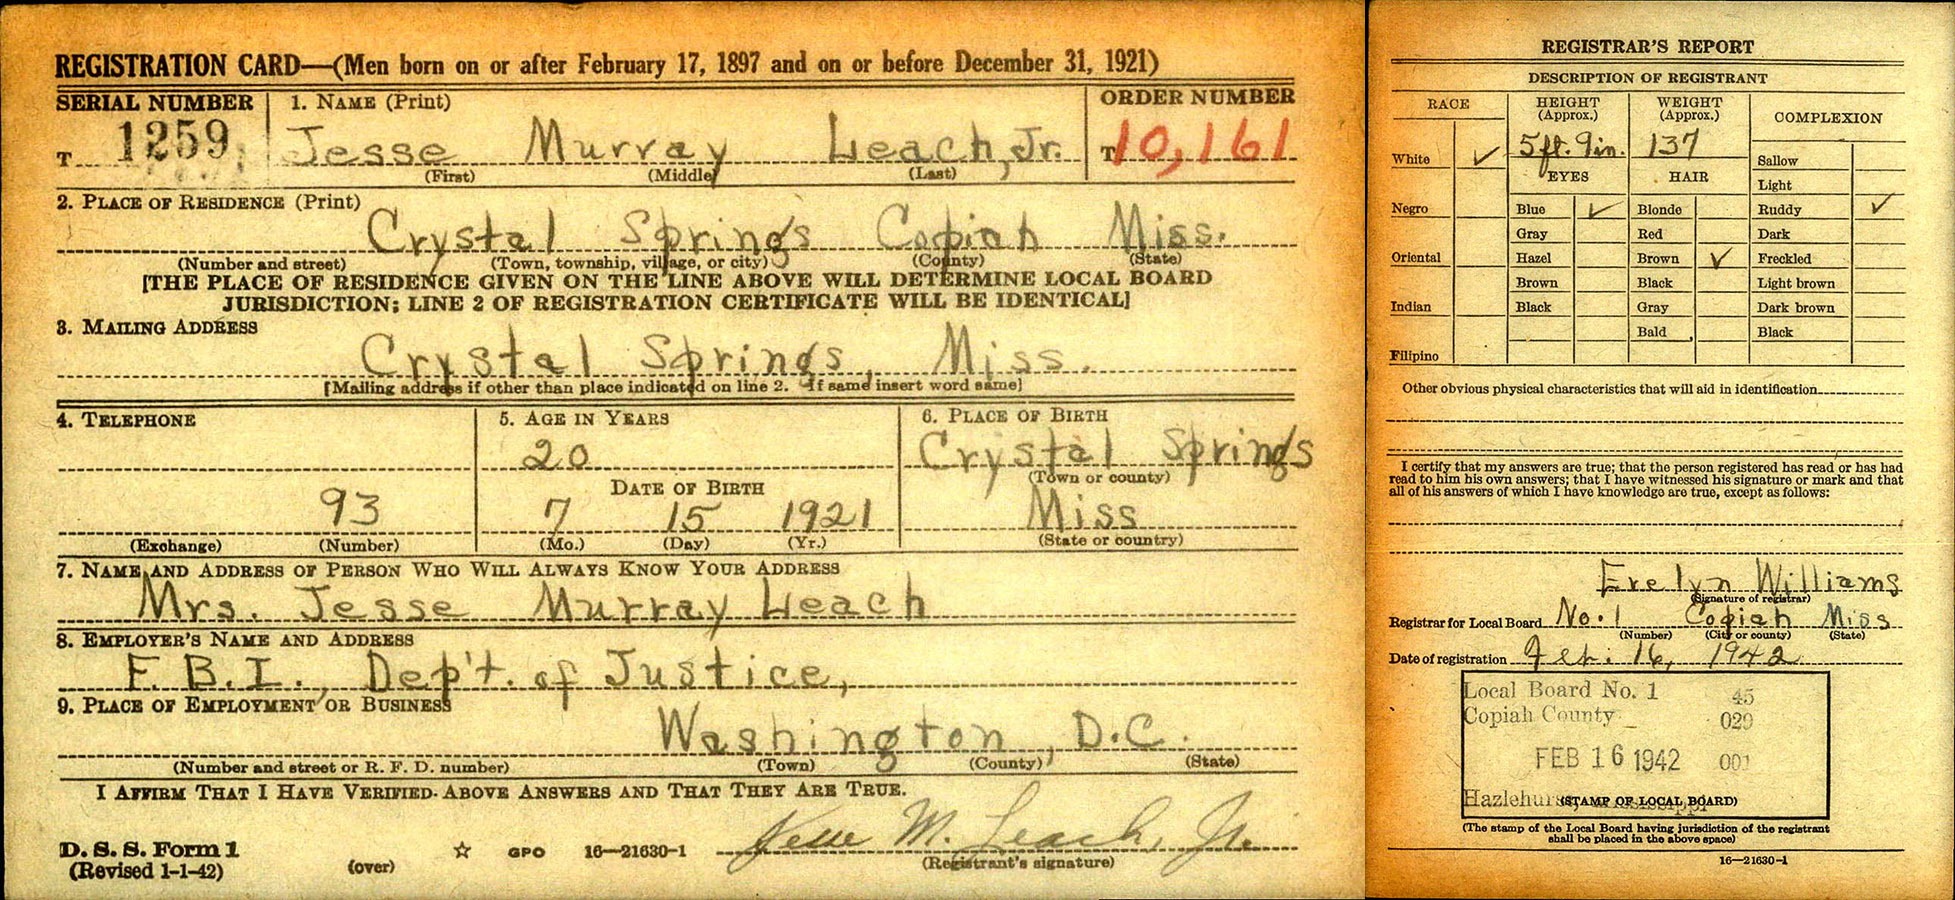 REGISTRATION CARD—(Men born on or after February 17, 1897 and on or before December 31, 1921)
SERIAL NUMBER
T 1259
1. NAME (Print)
Jesse Murray Leach, Jr.
(First) (Middle) (Last)
ORDER NUMBER
T10,161
2. PLACE OF RESIDENCE (Print)
Crystal Springs Copiah Miss.
(Number and street) (Town, township, village, or city) (County) (State)
[THE PLACE OF RESIDENCE GIVEN ON THE LINE ABOVE WILL DETERMINE LOCAL BOARD
JURISDICTION; LINE 2 OF REGISTRATION CERTIFICATE WILL BE IDENTICAL]
3. MAILING ADDRESS
Crystal Springs, Miss.
[Mailing address if other than place indicated on line 2. If same insert word same]
4. TELEPHONE
93
(Exchange) (Number)
5. AGE IN YEARS
20
DATE OF BIRTH
7 15 1921
(Mo.) (Day) (Yr.)
6. PLACE OF BIRTH
Crystal Springs
(Town or county)
Miss
(State or country)
7. NAME AND ADDRESS OF PERSON WHO WILL ALWAYS KNOW YOUR ADDRESS
Mrs. Jesse Murray Leach
8. EMPLOYER'S NAME AND ADDRESS
F.B.I., Dep't. of Justice,
9. PLACE OF EMPLOYMENT OR BUSINESS
Washington, D.C.
(Number and street or R. F. D. number) (Town) (County) (State)
I AFFIRM THAT I HAVE VERIFIED ABOVE ANSWERS AND THAT THEY ARE TRUE.
Jesse M. Leach, Jr.
D. S. S. Form 1 GPO 16—21630-1 (Registrant's signature)
(Revised 1-1-42) (over)
REGISTRAR'S REPORT
DESCRIPTION OF REGISTRANT
RACE
White ✓
Negro
Oriental
Indian
Filipino
HEIGHT
(Approx.)
5 ft. 9 in.
EYES
Blue ✓
Gray
Hazel
Brown
Black
WEIGHT
(Approx.)
137
HAIR
Blonde
Red
Brown ✓
Black
Gray
Bald
COMPLEXION
Sallow
Light
Ruddy ✓
Dark
Freckled
Light brown
Dark brown
Black
Other obvious physical characteristics that will aid in identification
I certify that my answers are true; that the person registered has read or has had
read to him his own answers; that I have witnessed his signature or mark and that
all of his answers of which I have knowledge are true, except as follows:
Evelyn Williams
(Signature of registrar)
Registrar for Local Board No. 1 Copiah Miss
(Number) (City or county) (State)
Date of registration Feb. 16, 1942
Local Board No. 1 45
Copiah County 029
FEB 16 1942 001
Hazlehurst, Mississippi
(STAMP OF LOCAL BOARD)
(The stamp of the Local Board having jurisdiction of the registrant
shall be placed in the above space)
16—21630-1